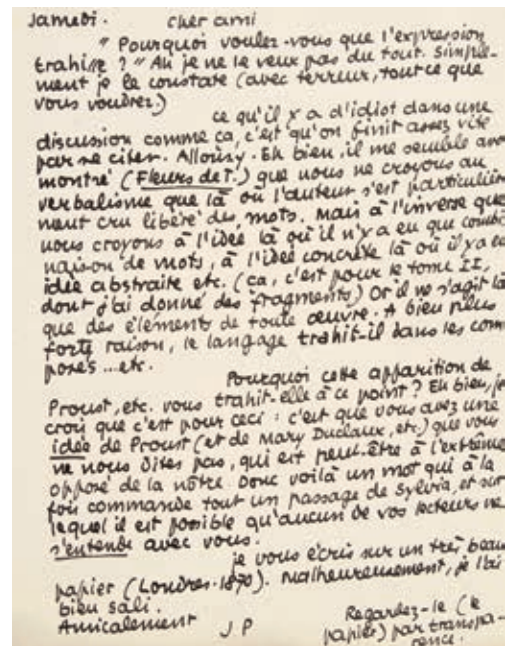 Samedi. cher ami
"Pourquoi voulez-vous que l'expression
trahisse?" Ah je ne le veux pas du tout. Simple-
ment je le constate (avec terreur, tout ce que
vous voudrez)
ce qu'il y a d'idiot dans une
discussion comme ça, c'est qu'on finit assez vite
par se citer. Allons-y. Eh bien, il me semble avo
montré (Fleurs de T.) que nous ne croyons au
verbalisme que là où l'auteur s'est particulière
ment cru libéré des mots. Mais à l'inverse que
nous croyons à l'idée là où il n'y a eu que combi
naison de mots, à l'idée concrète là où il y a eu
idée abstraite etc. (ça, c'est pour le tome II,
dont j'ai donné des fragments) Or il ne s'agit là
que des éléments de toute œuvre. A bien plus
forte raison, le langage trahit-il dans les com
posés ... etc.
Pourquoi cette apparition de
Proust, etc. vous trahit-elle à ce point? Eh bien, je
crois que c'est pour ceci : c'est que vous avez une
idée de Proust (et de Mary Duclaux, etc.) que vous
ne nous dites pas, qui est peut-être à l'extrême
opposé de la nôtre. Donc voilà un mot qui à la
fois commande tout un passage de Sylvia, et sur
lequel il est possible qu'aucun de vos lecteurs ne
s'entende avec vous.
je vous écris sur un très beau
papier (Londres. 1870). Malheureusement, je l'ai
bien sali.
Amicalement J P
Regardez-le (le
papier) par transpa-
rence.